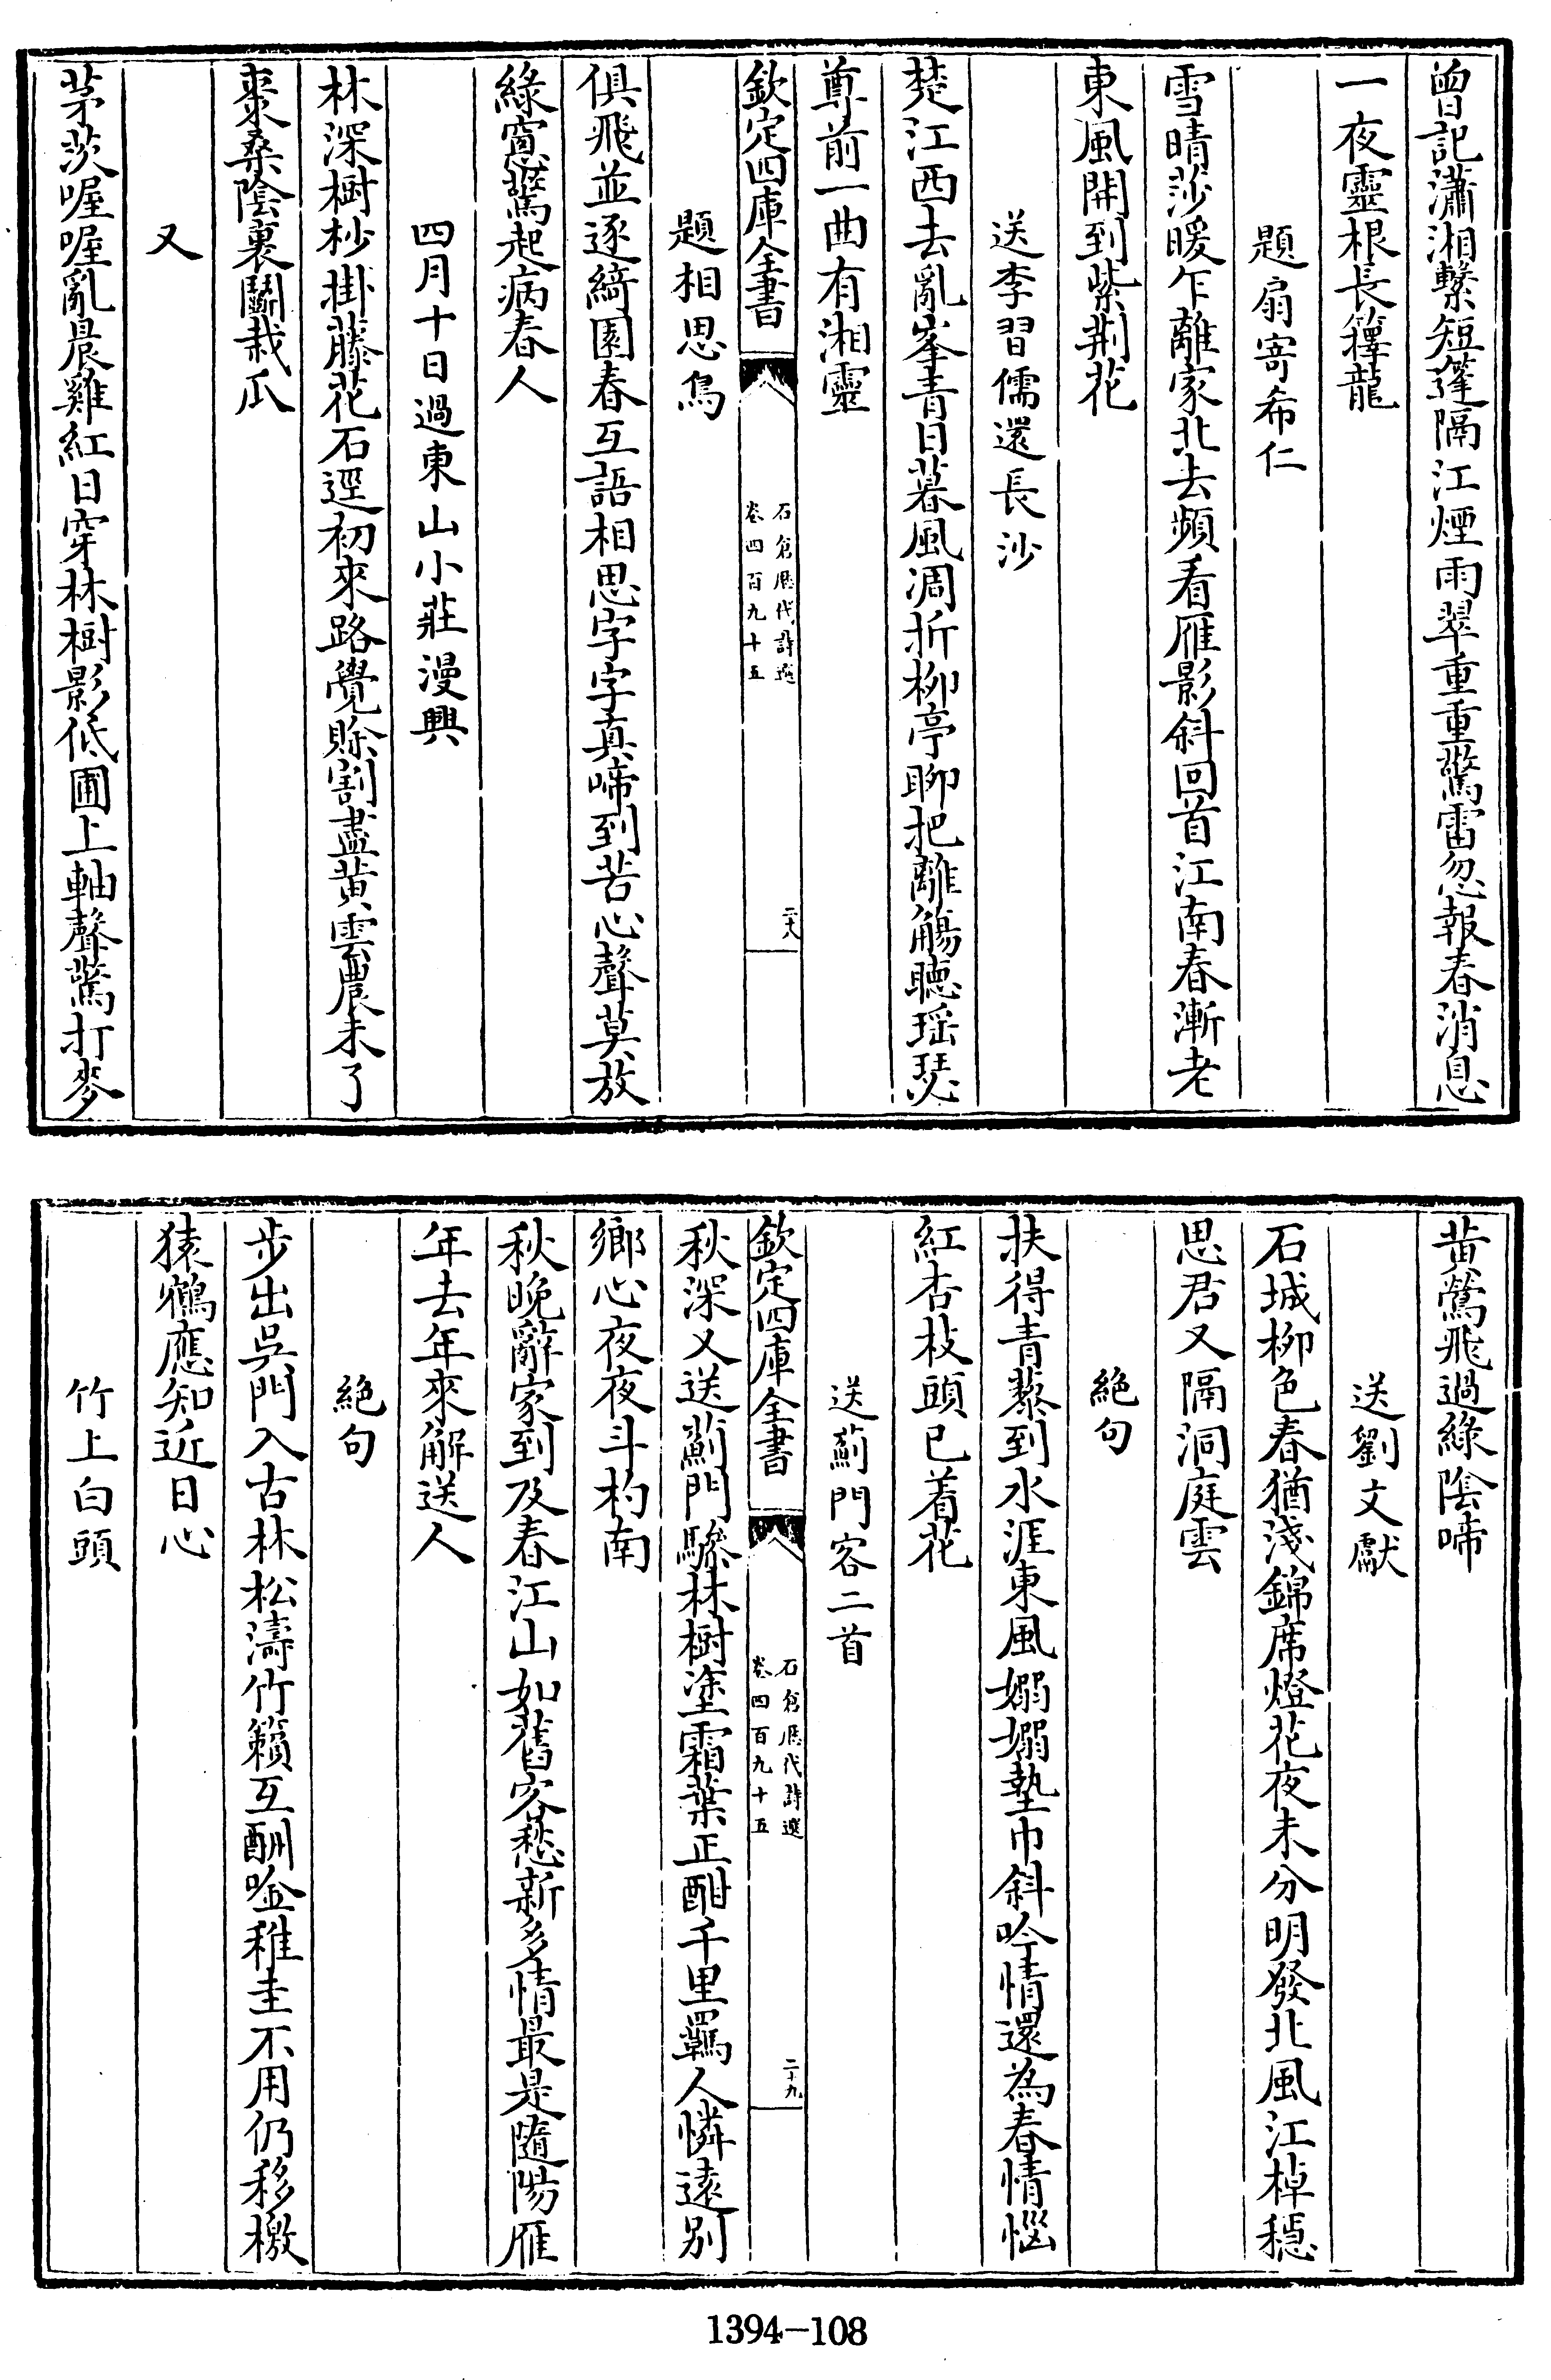 曾記瀟湘繫短篷隔江煙雨翠重重驚雷忽報春消息
一夜靈根長籜龍
題扇寄希仁
雪晴沙暖乍離家北去頻看雁影斜回首江南春漸老
東風開到紫荆花
送李習儒還長沙
楚江西去亂峯青日暮風凋折柳亭聊把離觴聽瑶瑟
尊前一曲有湘靈
欽定四庫全書
石倉歷代詩選
卷四百九十五
二十八
題相思鳥
俱飛並逐綺園春互語相思字字真啼到苦心聲莫放
綠窻驚起病春人
四月十日過東山小莊漫興
林深樹杪掛藤花石逕初來路覺賖割盡黄雲農未了
棗桑陰裏鬭栽瓜
又
茅茨喔喔亂晨雞紅日穿林樹影低圃上軸聲驚打麥
黄鶯飛過綠陰啼
送劉文獻
石城柳色春猶淺錦席燈花夜未分明發北風江棹穩
思君又隔洞庭雲
絶句
扶得青藜到水涯東風嫋嫋墊巾斜吟情還為春情惱
紅杏枝頭已着花
送薊門客二首
欽定四庫全書
石倉歷代詩選
卷四百九十五
二十九
秋深又送薊門驂林樹塗霜葉正酣千里羈人憐遠别
鄉心夜夜斗杓南
秋晚辭家到及春江山如舊客愁新多情最是隨陽雁
年去年來解送人
絶句
步出吳門入古林松濤竹籟互酬唫稚圭不用仍移檄
猿鶴應知近日心
竹上白頭
1394-108